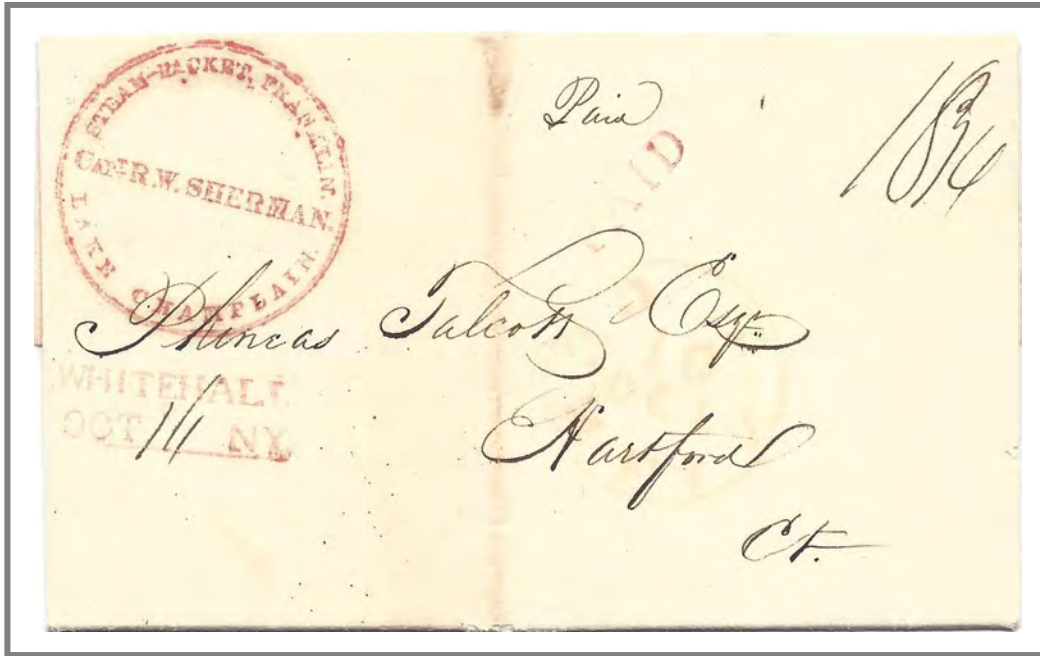 STEAM-PACKET, FRANKLIN.
CAPT. R.W. SHERMAN.
LAKE CHAMPLAIN.
Paid
PAID
18¾
Phineas Talcott Esqr.
WHITEHALL
OCT 11 NY
Hartford
Ct.